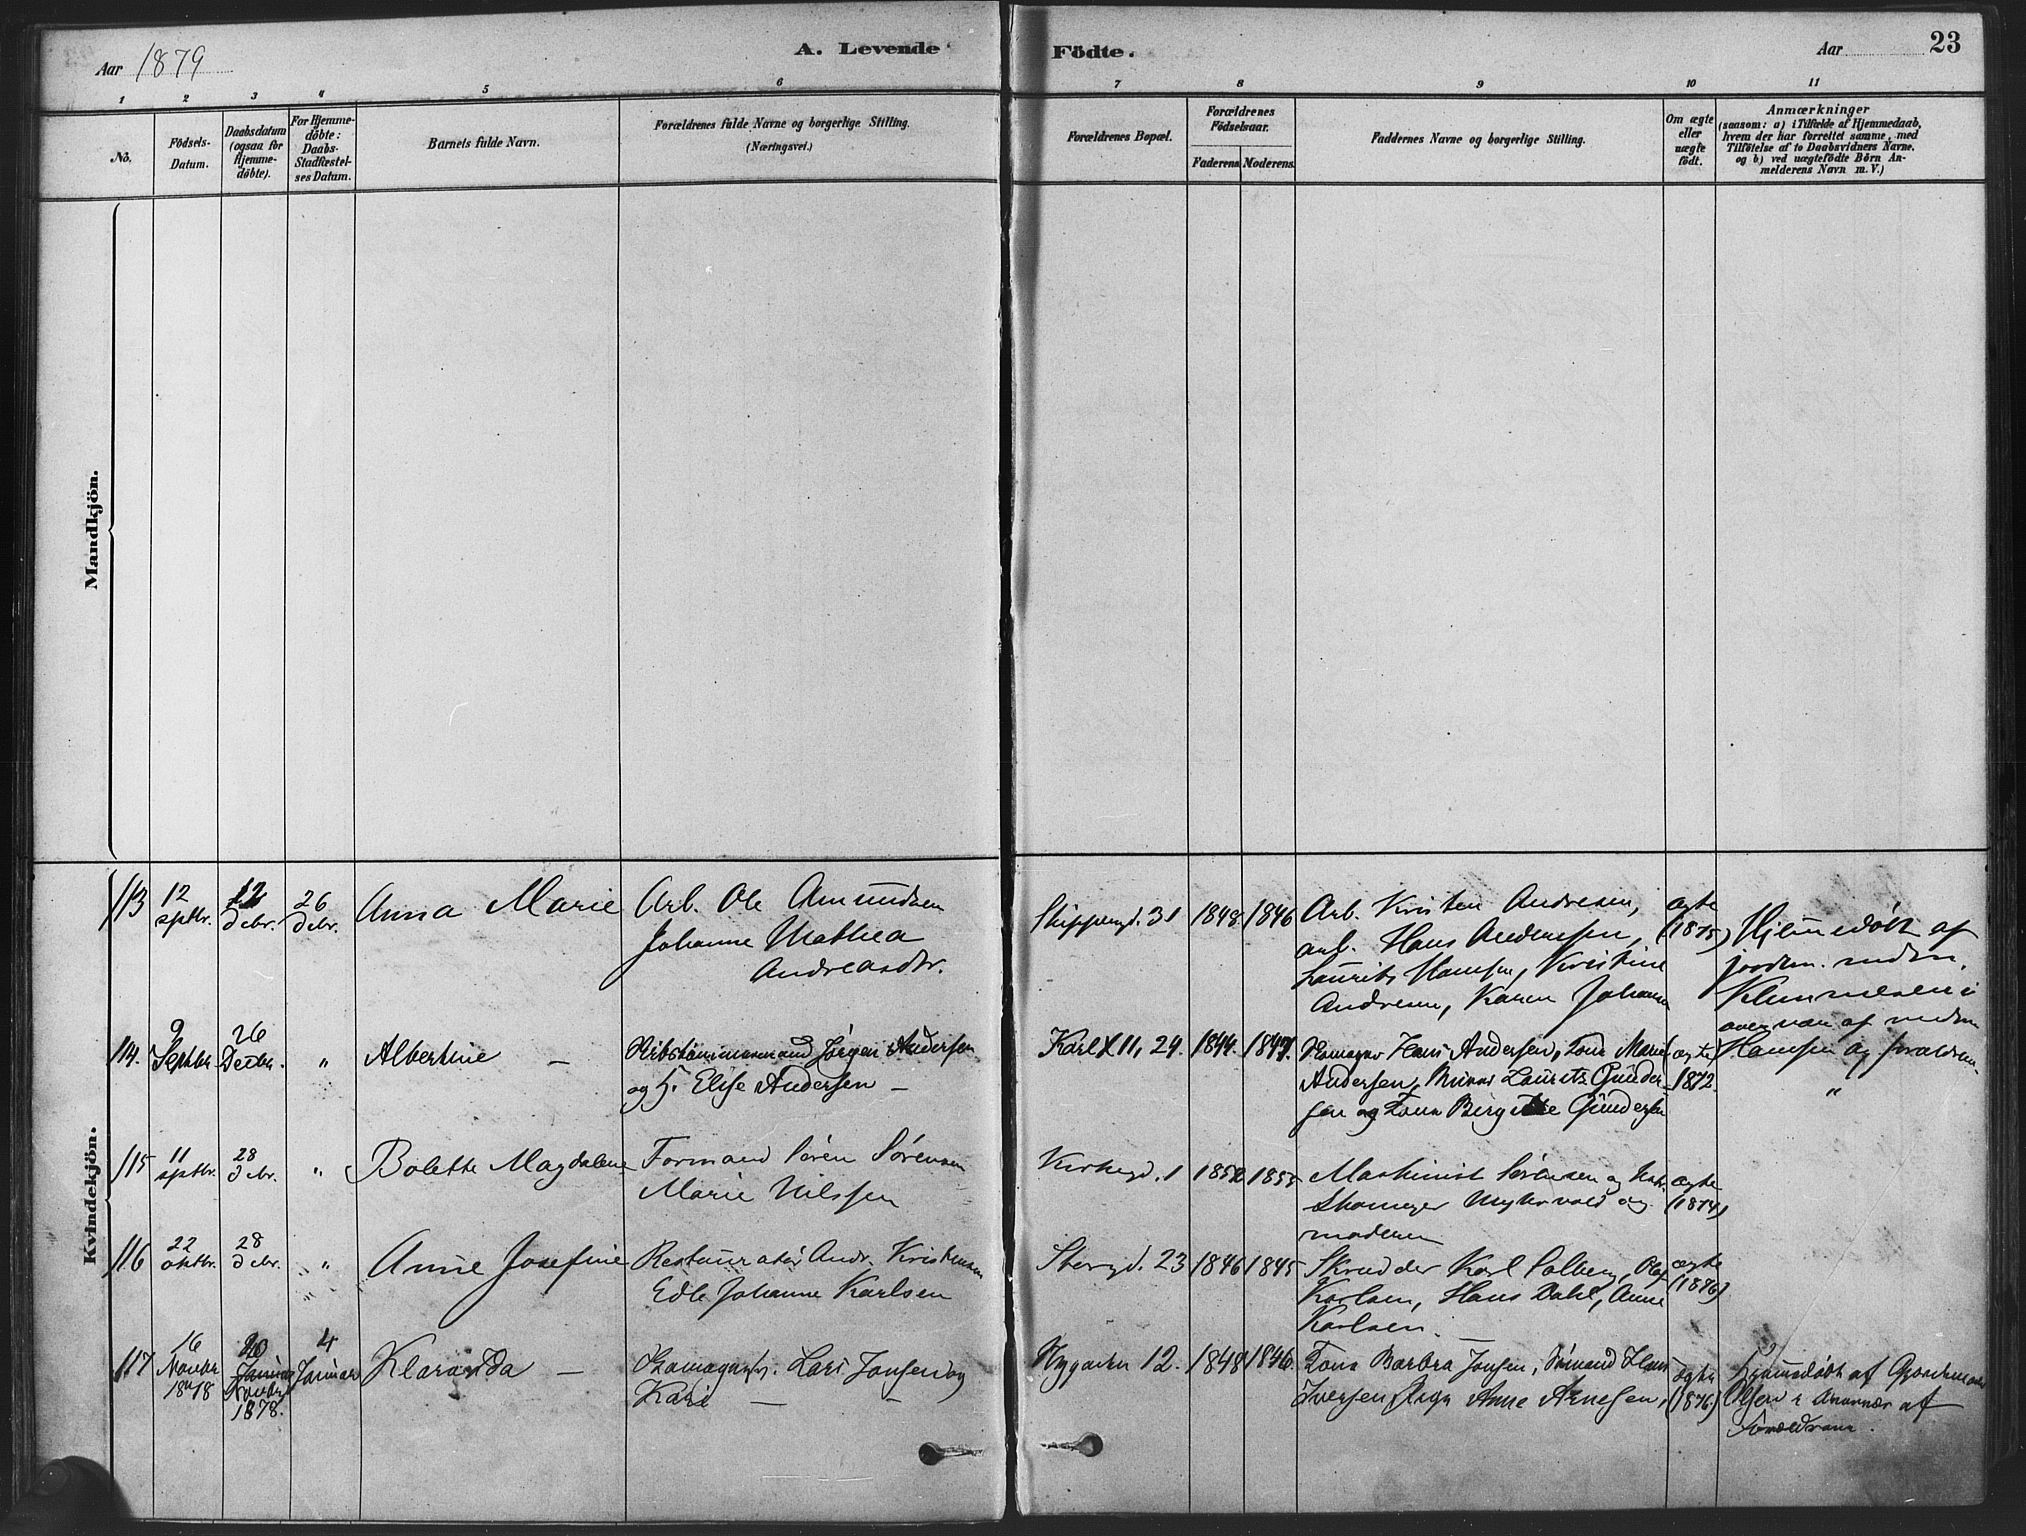 Aar 1879
A. Levende
Födte.
Aar
23
1 2 3 4 5 6 7 8 9 10 11
No.
Födsels-
Datum.
Daabsdatum
(ogsaa for
Hjemme-
döbte).
For Hjemme-
döbte:
Daabs-
Stadfæstel-
ses Datum.
Barnets fulde Navn.
Forældrenes fulde Navne og borgerlige Stilling.
(Næringsvei.)
Forældrenes Bopæl.
Forældrenes
Födselsaar.
Faderens. Moderens.
Faddernes Navne og borgerlige Stilling.
Om ægte
eller
uægte
födt.
Anmærkninger
(saasom: a) i Tilfælde af Hjemmedaab,
hvem der har forrettet samme, med
Tilföielse af to Daabsvidners Navne,
og b) ved uægtefödte Börn An-
melderens Navn m. V.)
Mandkjön.
Kvindekjön.
113
12
septbr.
12
debr.
26
debr.
Anna Marie
Arb. Ole Amundsen
Johanne Mathea
Andreasdtr.
Skipperg. 31
1848
1846
Arb. Kristen Andresen,
arb. Hans Andersen,
Laurits Hansen, Kristine
Andresen, Karen Johansen
ægte
(1875)
Hjemmedøbt af
jordem. madm.
overvær af madm
Hansen og forældrene
114.
9
Septbr.
26
Decbr.
"
Albertine —
og H. Elise Andersen —
Karl XII, 24.
1844.
1847.
Hans Andersen, Kone Marie
Andersen, Laurits Gunder-
sen og Kone Birgitte Gundersen
ægte
1872.
"
115
11
septbr.
28
debr.
"
Bolette Magdalene
Formand Søren Sørensen
Marie Nilssen
Kirkegd. 1
1852
1853
Maskinist Sørensen og
Skomager og
moderen
ægte
(1874)
116
22
oktbr.
28
debr.
"
Anne Josefine
Restauratør Andr. Kristensen
Edle Johanne Karlsen
Storgd. 23
1846
1845
Skrædder Karl Solberg, Olaf
Karlsen, Hans Dahl, Anne
Karlsen. —
ægte
(1876)
117
16
Novbr
1878
Januar
Novbr
1878.
4
Januar
Klaranda —
Lars Jansen og
Kari — —
Nygaden 12.
1848
1846.
Kone Barbra Jansen, Sømand Hans
Iversen, Pige Anne Arnesen,
ægte
(1876)
Hjemmedøbt af Gjordemoder
Olsen i Overvær af
Forældrene.